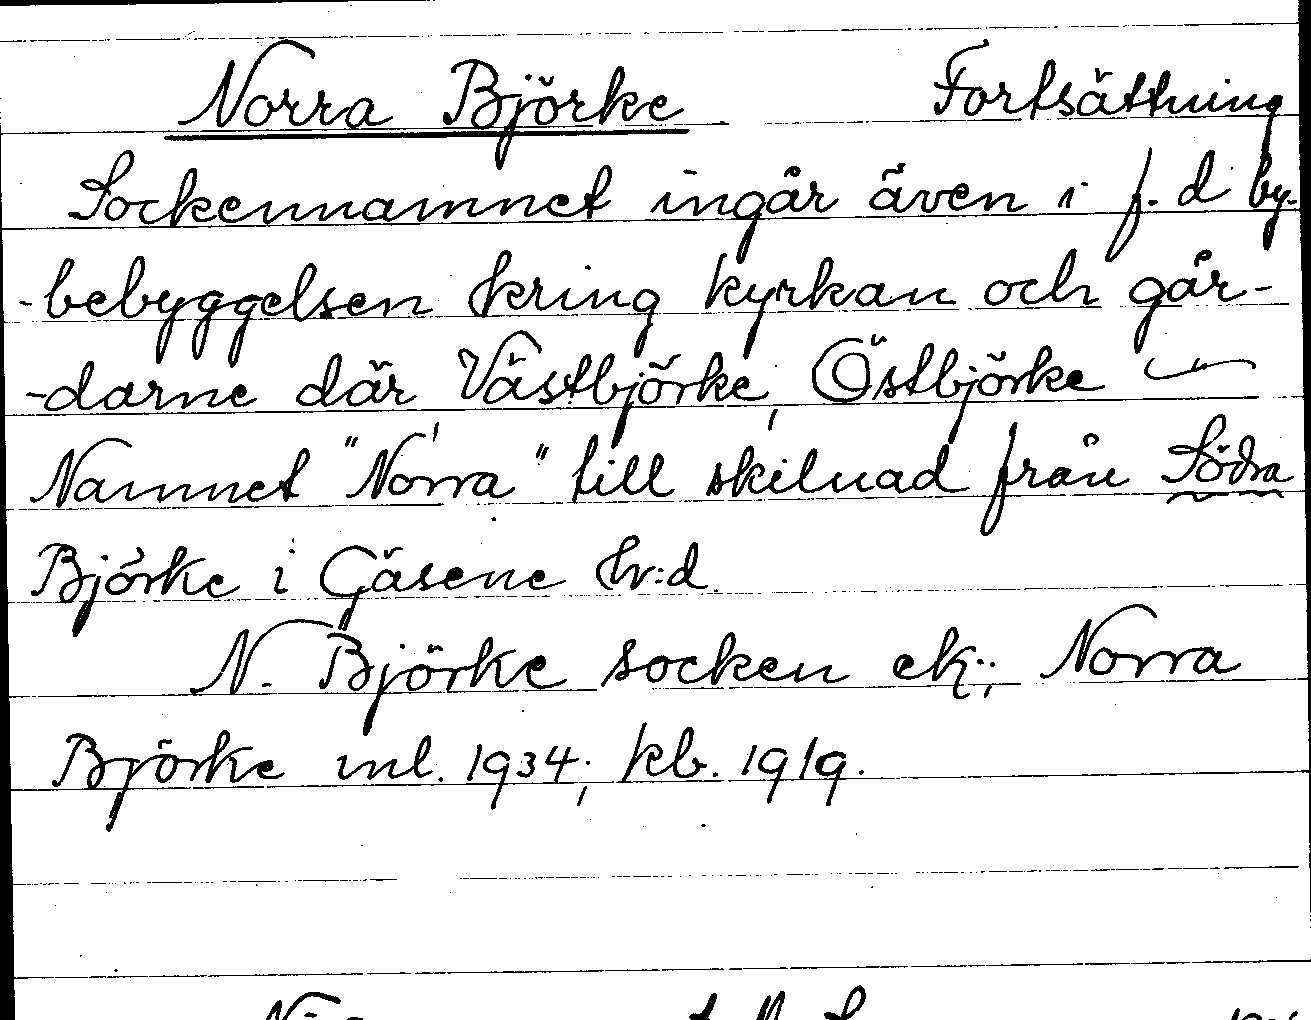 Norra Björke Fortsättning
Sockennamnet ingår även i f. d by-
-bebyggelsen kring kyrkan och går-
-darne där Västbjörke, Östbjörke
Namnet "Norra" till skilnad från Södra
Björke i Gäsene hr:d.
N. Björke socken ek; Norra
Björke ml. 1934; kb. 1919.